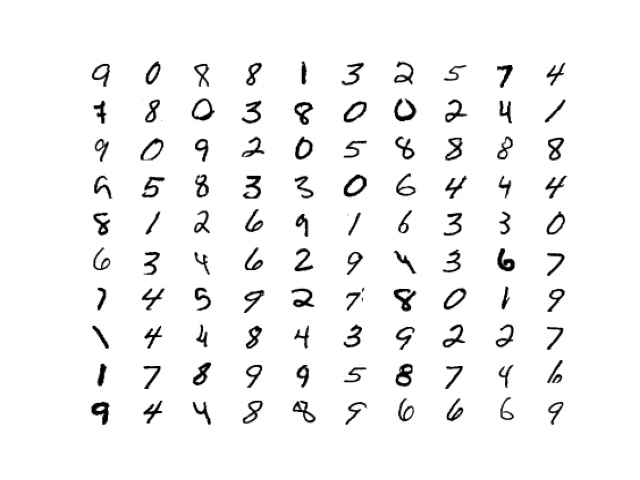 9 0 8 8 1 3 2 5 7 4
7 8 0 3 8 0 0 2 4 1
9 0 9 2 0 5 8 8 8 8
9 5 8 3 3 0 6 4 4 4
8 1 2 6 9 1 6 3 3 0
6 3 4 6 2 9 4 3 6 7
7 4 5 9 2 7 8 0 1 9
1 4 4 8 4 3 9 2 2 7
1 7 8 9 9 5 8 7 4 6
9 4 4 8 8 9 6 6 6 9